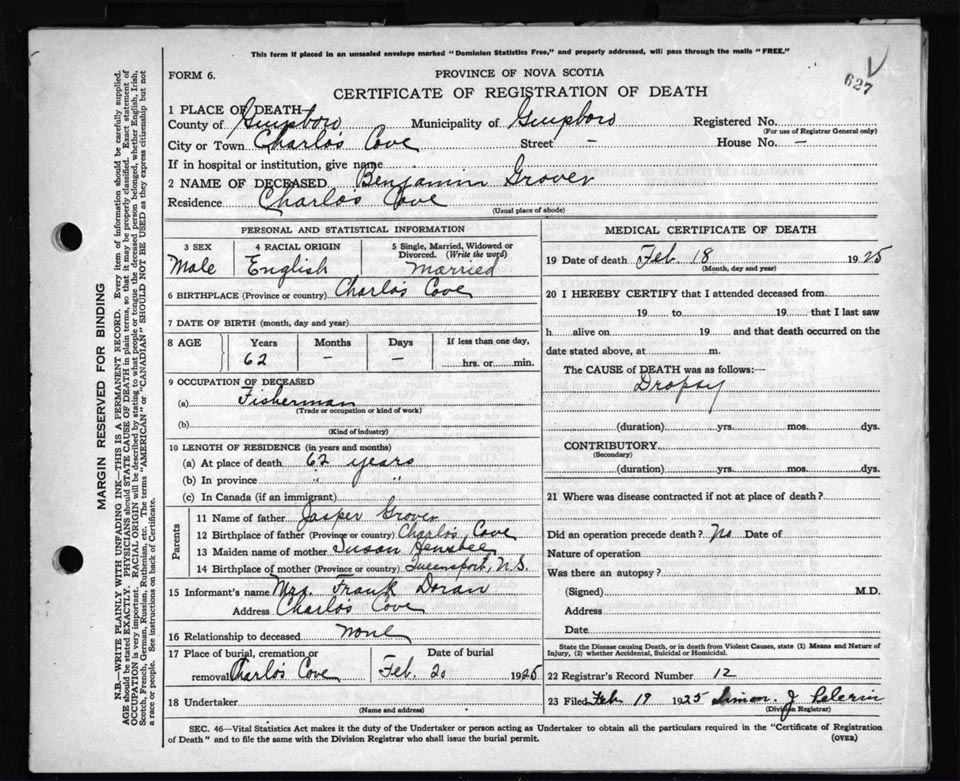 This form if placed in an unsealed envelope marked "Dominion Statistics Free," and properly addressed, will pass through the mails "FREE."
FORM 6.
PROVINCE OF NOVA SCOTIA
627
CERTIFICATE OF REGISTRATION OF DEATH
1 PLACE OF DEATH—
County of Guysboro Municipality of Guysboro Registered No.
(For use of Registrar General only)
City or Town Charlo's Cove Street – House No. –
If in hospital or institution, give name
2 NAME OF DECEASED Benjamin Grover
Residence Charlo's Cove
(Usual place of abode)
PERSONAL AND STATISTICAL INFORMATION
3 SEX 4 RACIAL ORIGIN 5 Single, Married, Widowed or Divorced. (Write the word)
Male English Married
6 BIRTHPLACE (Province or country) Charlo's Cove
7 DATE OF BIRTH (month, day and year)
8 AGE Years Months Days If less than one day,
62 – – hrs. or min.
9 OCCUPATION OF DECEASED
(a) Fisherman
(Trade or occupation or kind of work)
(b)
(Kind of industry)
10 LENGTH OF RESIDENCE (in years and months)
(a) At place of death 62 years
(b) In province " "
(c) In Canada (if an immigrant)
Parents
11 Name of father Jasper Grover
12 Birthplace of father (Province or country) Charlo's Cove
13 Maiden name of mother Susan Hensbee
14 Birthplace of mother (Province or country) Queensport, N.S.
15 Informant's name Mrs. Frank Doran
Address Charlo's Cove
16 Relationship to deceased none
17 Place of burial, cremation or removal Charlo's Cove Date of burial Feb. 20 1925
18 Undertaker
(Name and address)
MEDICAL CERTIFICATE OF DEATH
19 Date of death Feb. 18 1925
(Month, day and year)
20 I HEREBY CERTIFY that I attended deceased from
19 to 19 that I last saw
h alive on 19 and that death occurred on the
date stated above, at m.
The CAUSE of DEATH was as follows:—
Dropsy
(duration) yrs. mos. dys.
CONTRIBUTORY
(Secondary)
(duration) yrs. mos. dys.
21 Where was disease contracted if not at place of death?
Did an operation precede death? No Date of
Nature of operation
Was there an autopsy?
(Signed) M.D.
Address
Date
State the Disease causing Death, or in death from Violent Causes, state (1) Means and Nature of
Injury, (2) whether Accidental, Suicidal or Homicidal.
22 Registrar's Record Number 12
23 Filed Feb 19 1925 Simon J
(Division Registrar)
SEC. 46—Vital Statistics Act makes it the duty of the Undertaker or person acting as Undertaker to obtain all the particulars required in the "Certificate of Registration
of Death" and to file the same with the Division Registrar who shall issue the burial permit.
(OVER)
MARGIN RESERVED FOR BINDING
N.B.—WRITE PLAINLY WITH UNFADING INK—THIS IS A PERMANENT RECORD. Every item of information should be carefully supplied.
AGE should be stated EXACTLY. PHYSICIANS should STATE CAUSE OF DEATH in plain terms, so that it may be properly classified. Exact statement of
OCCUPATION is very important. RACIAL ORIGIN will be described by stating to what people or tongue the deceased person belonged, whether English, Irish,
Scotch, French, German, Russian, Ruthenian, etc. The terms "AMERICAN" or "CANADIAN" SHOULD NOT BE USED as they express citizenship but not
a race or people. See instructions on back of Certificate.